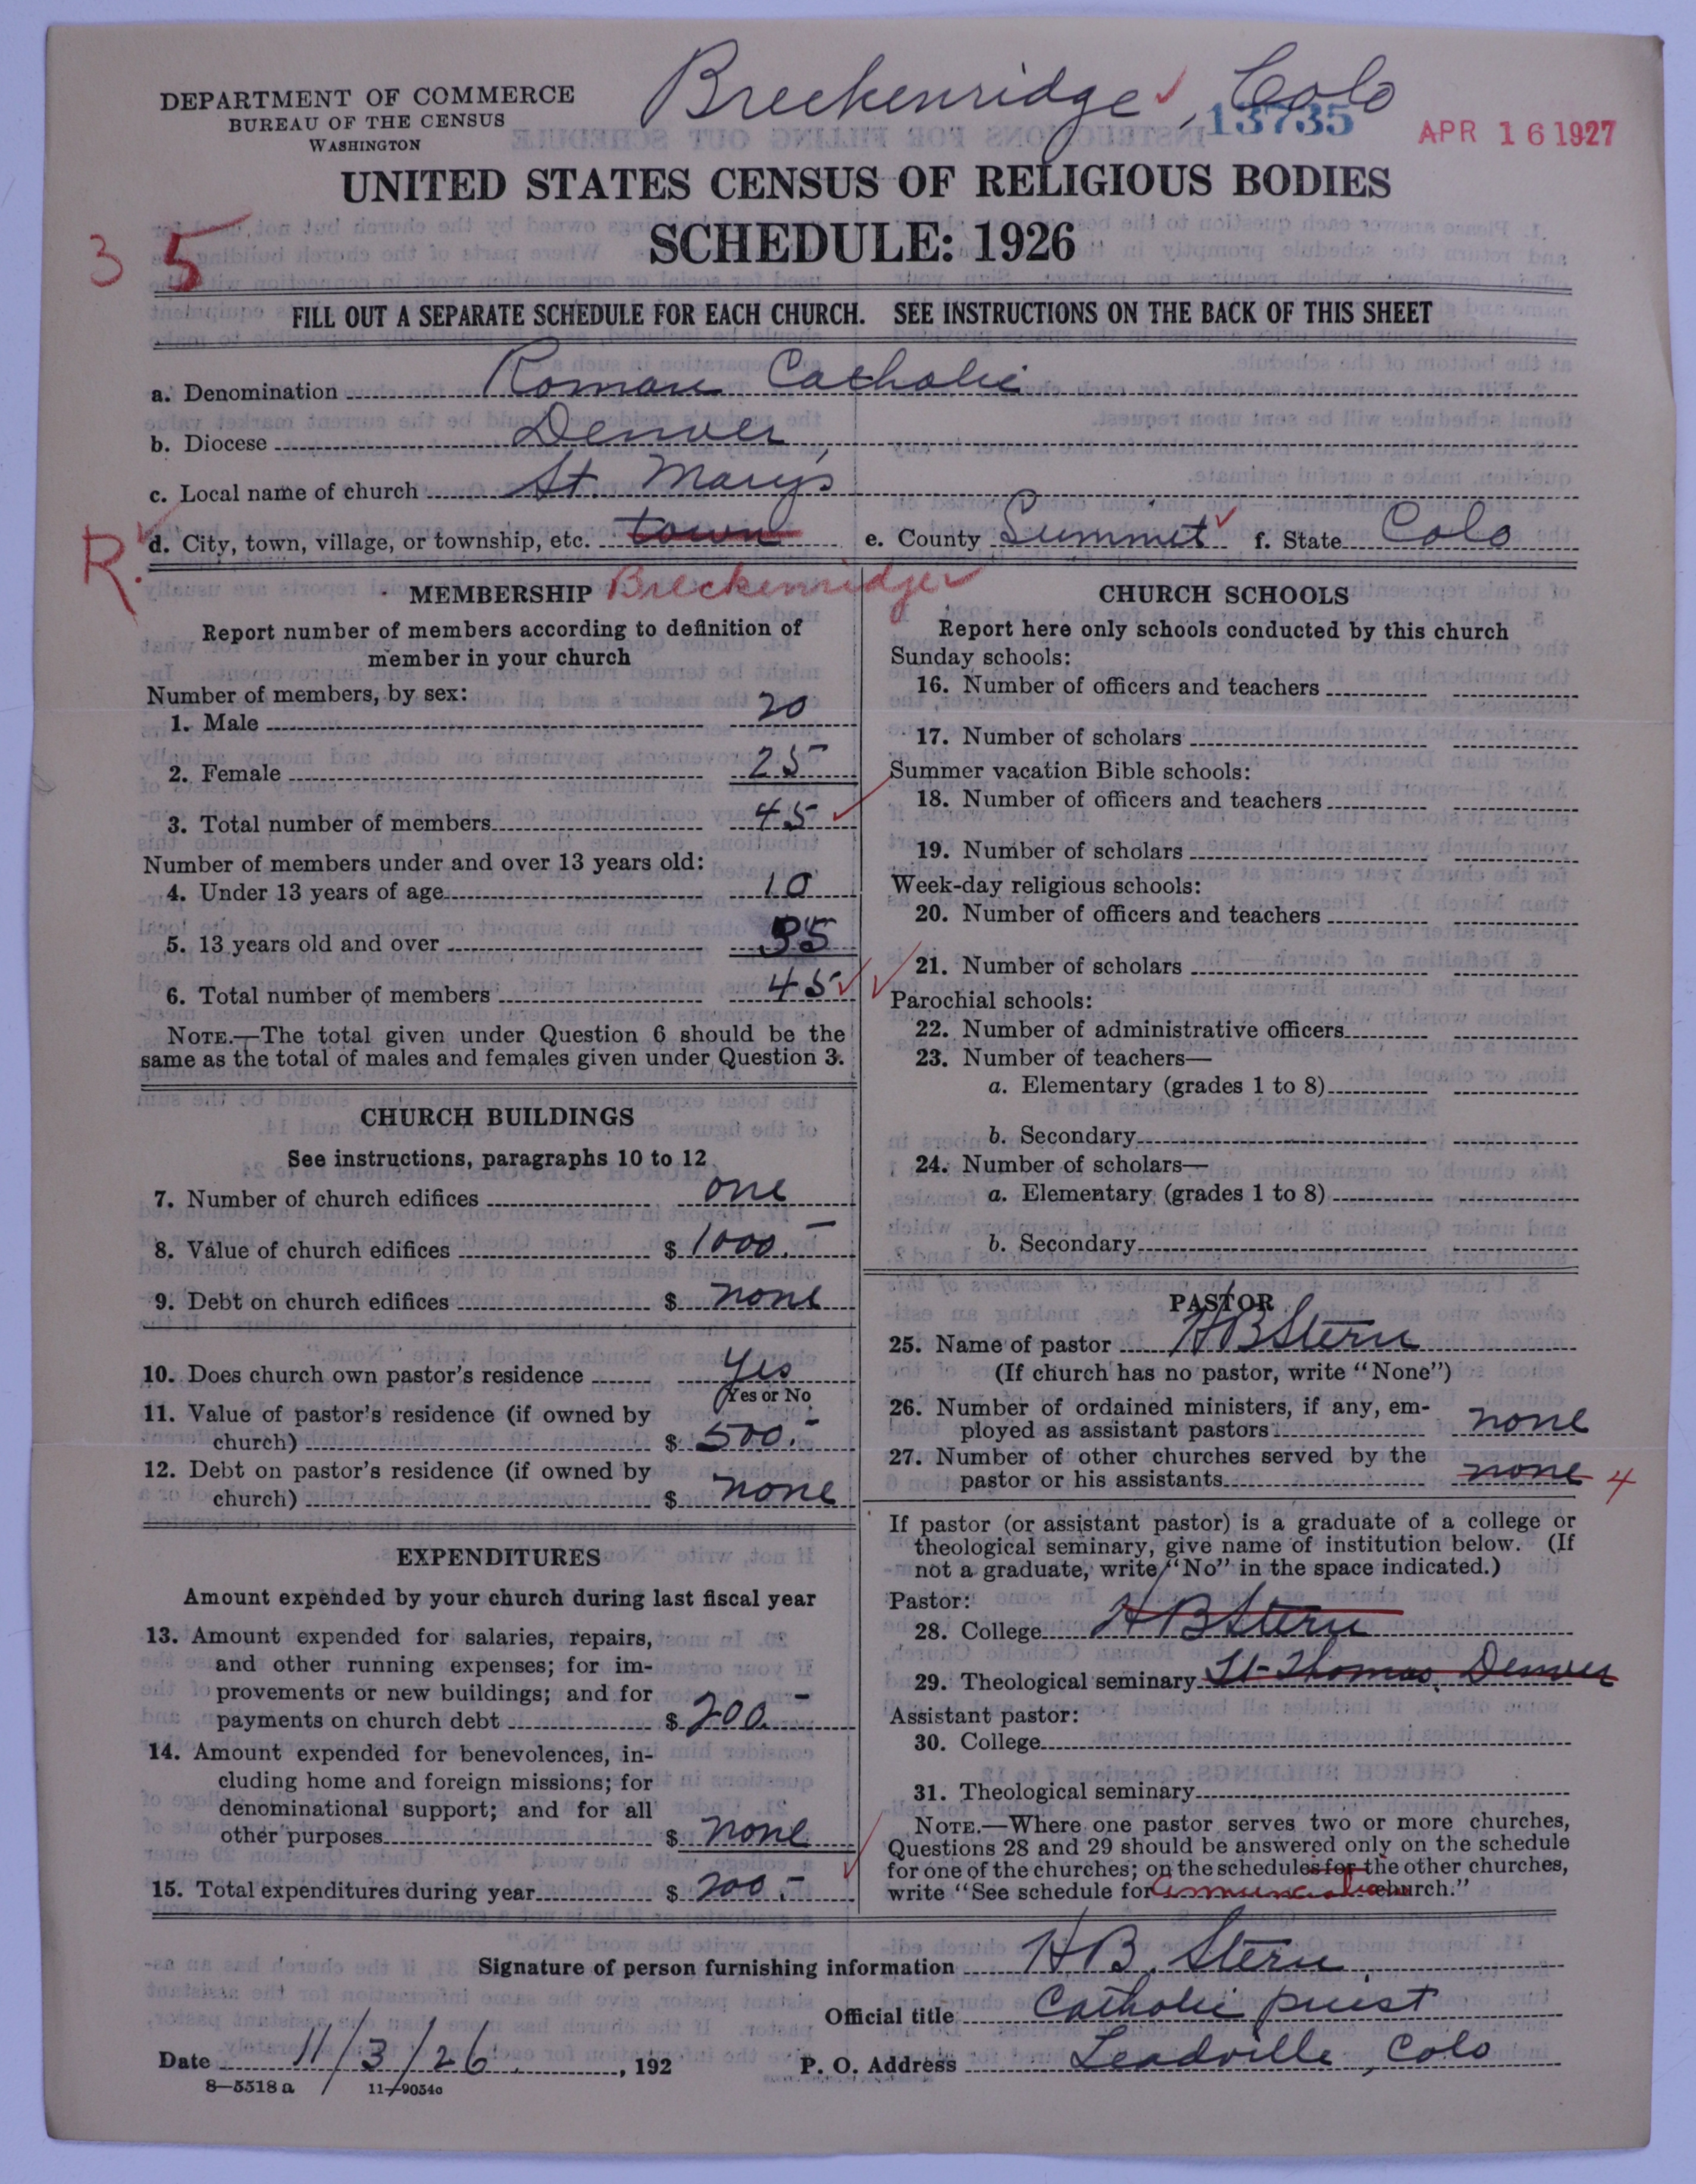 Breckenridge, Colo
DEPARTMENT OF COMMERCE
BUREAU OF THE CENSUS
WASHINGTON
13735
APR 16 1927
UNITED STATES CENSUS OF RELIGIOUS BODIES
SCHEDULE: 1926
3 5
FILL OUT A SEPARATE SCHEDULE FOR EACH CHURCH. SEE INSTRUCTIONS ON THE BACK OF THIS SHEET
a. Denomination Roman Catholic
b. Diocese Denver,
c. Local name of church St. Mary's
R.
d. City, town, village, or township, etc. town e. County Summit f. State Colo
Breckenridge
MEMBERSHIP
Report number of members according to definition of
member in your church
Number of members, by sex:
1. Male 20
2. Female 25
3. Total number of members 45
Number of members under and over 13 years old:
4. Under 13 years of age 10
5. 13 years old and over 35
6. Total number of members 45
NOTE.—The total given under Question 6 should be the
same as the total of males and females given under Question 3.
CHURCH BUILDINGS
See instructions, paragraphs 10 to 12
7. Number of church edifices one
8. Value of church edifices $ 1000.-
9. Debt on church edifices $ none
10. Does church own pastor's residence Yes
Yes or No
11. Value of pastor's residence (if owned by
church) $ 500.-
12. Debt on pastor's residence (if owned by
church) $ none
EXPENDITURES
Amount expended by your church during last fiscal year
13. Amount expended for salaries, repairs,
and other running expenses; for im-
provements or new buildings; and for
payments on church debt $ 200.-
14. Amount expended for benevolences, in-
cluding home and foreign missions; for
denominational support; and for all
other purposes $ none
15. Total expenditures during year $ 200.-
CHURCH SCHOOLS
Report here only schools conducted by this church
Sunday schools:
16. Number of officers and teachers
17. Number of scholars
Summer vacation Bible schools:
18. Number of officers and teachers
19. Number of scholars
Week-day religious schools:
20. Number of officers and teachers
21. Number of scholars
Parochial schools:
22. Number of administrative officers
23. Number of teachers—
a. Elementary (grades 1 to 8)
b. Secondary
24. Number of scholars—
a. Elementary (grades 1 to 8)
b. Secondary
PASTOR
25. Name of pastor H B Stern
(If church has no pastor, write "None")
26. Number of ordained ministers, if any, em-
ployed as assistant pastors none
27. Number of other churches served by the
pastor or his assistants none 4
If pastor (or assistant pastor) is a graduate of a college or
theological seminary, give name of institution below. (If
not a graduate, write "No" in the space indicated.)
Pastor:
28. College H B Stern
29. Theological seminary St-Thomas, Denver
Assistant pastor:
30. College
31. Theological seminary
NOTE.—Where one pastor serves two or more churches,
Questions 28 and 29 should be answered only on the schedule
for one of the churches; on the schedules for the other churches,
write "See schedule for church."
Signature of person furnishing information H B. Stern.
Official title Catholic priest
Date 11/3/26, 192 P. O. Address Leadville, Colo
8—5518 a 11—9054c